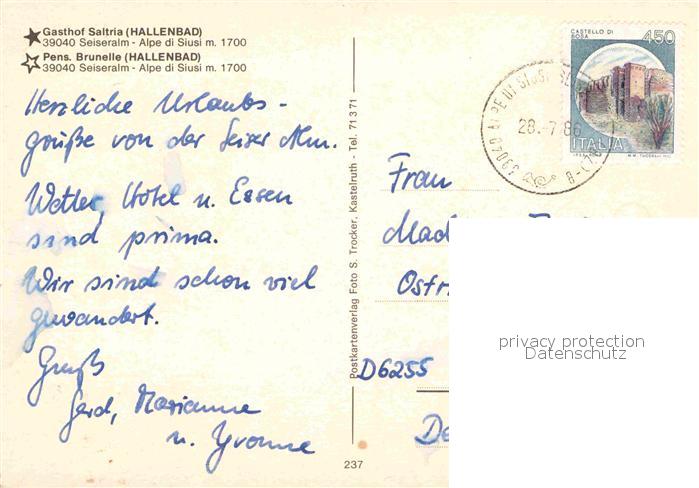 Gasthof Saltria (HALLENBAD)
39040 Seiseralm - Alpe di Siusi m. 1700
Pens. Brunelle (HALLENBAD)
39040 Seiseralm - Alpe di Siusi m. 1700
Herzliche Urlaubs-
grüße von der Seiser Alm.
Wetter, Hotel u. Essen
sind prima.
Wir sind schon viel
gewandert.
Gruß
Gerd, Marianne
u. Yvonne
Postkartenverlag Foto S. Trocker, Kastelruth - Tel. 71371
237
CASTELLO DI
BOSA
450
ITALIA
39040 ALPE DI SIUSI
28.-7.86
Frau
Mad
Ostr
D6255
De
privacy protection
Datenschutz